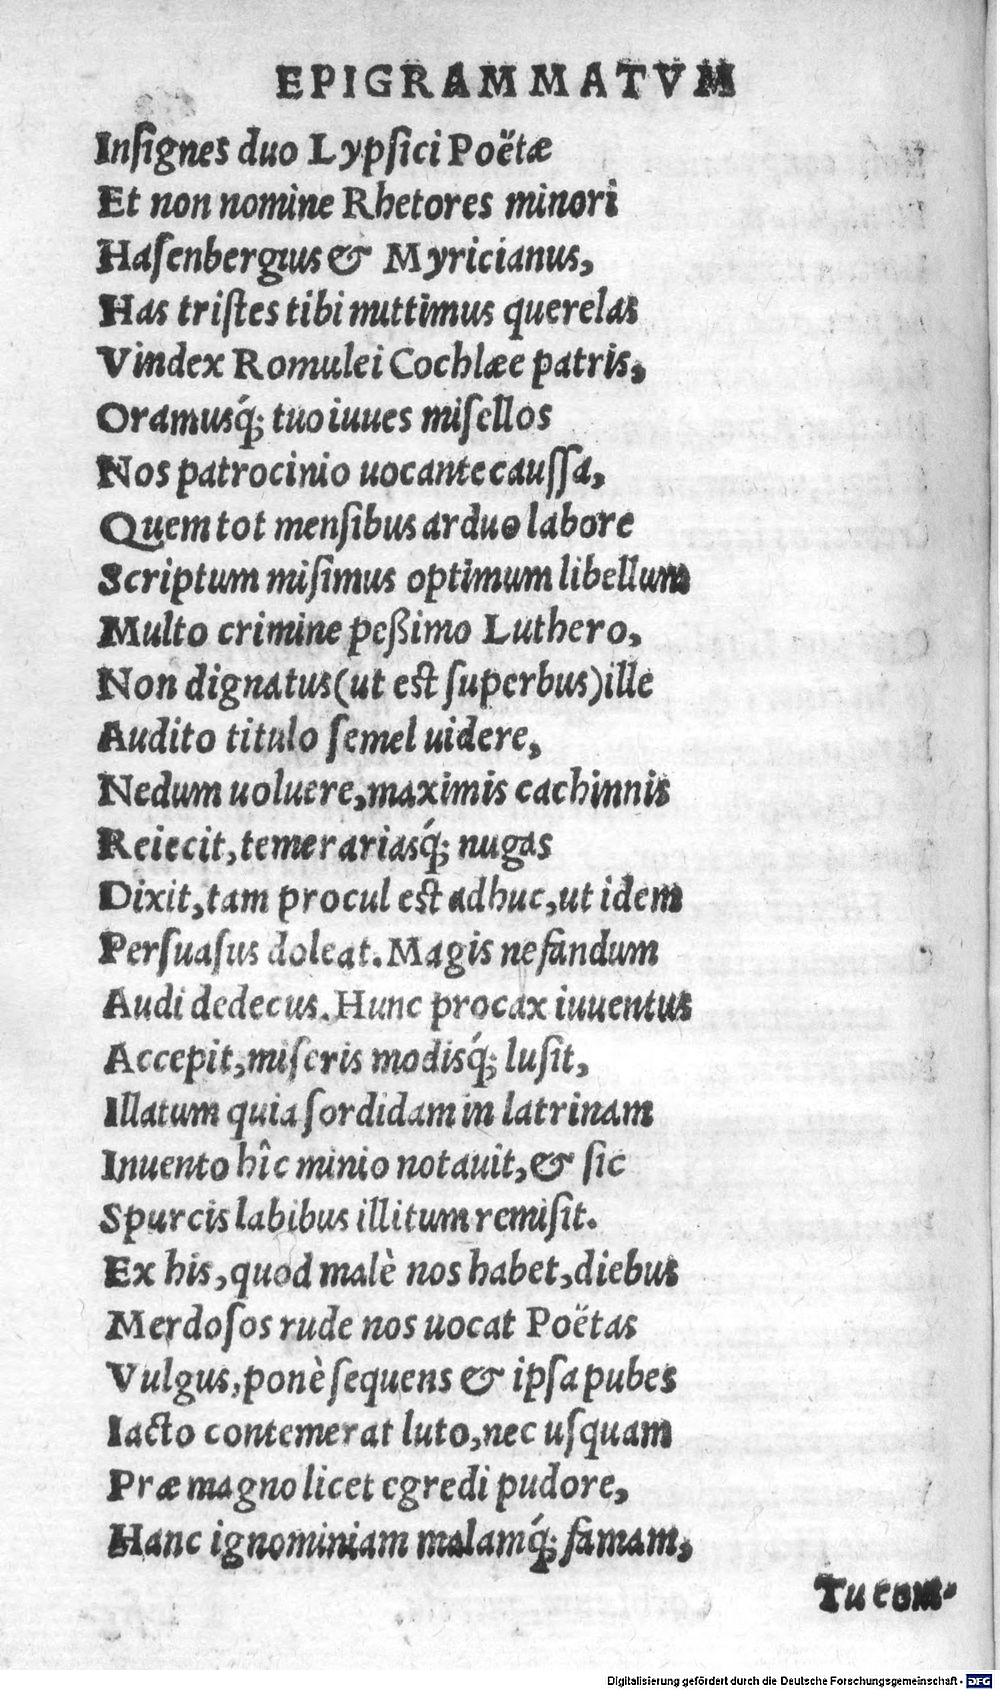 EPIGRAMMATVM
Inſignes duo Lypſici Poëtæ
Et non nomine Rhetores minori
Haſenbergius & Myricianus,
Has triſtes tibi nuttimus querelas
Vindex Romulei Cochlæe patris,
Oramusq́; tuo iuues miſellos
Nos patrocinio uocante cauſſa,
Quem tot menſibus arduo labore
Scriptum miſimus optimum libellum
Multo crimine peßimo Luthero,
Non dignatus (ut eſt ſuperbus) ille
Audito titulo ſemel uidere,
Nedum uoluere, maximis cachinnis
Reiecit, temerariasq́; nugas
Dixit, tam procul eſt adhuc, ut idem
Perſuaſus doleat. Magis nefandum
Audi dedecus. Hunc procax iuuentus
Accepit, miſeris modisq́; luſit,
Illatum quia ſordidam in latrinam
Inuento hîc minio notauit, & ſic
Spurcis labibus illitum remiſit.
Ex his, quod malè nos habet, diebus
Merdoſos rude nos uocat Poëtas
Vulgus, ponè ſequens & ipſa pubes
Iacto contemerat luto, nec uſquam
Præ magno licet egredi pudore,
Hanc ignominiam malamq́; famam,
Tu com-
Digitalisierung gefördert durch die Deutsche Forschungsgemeinschaft - DFG